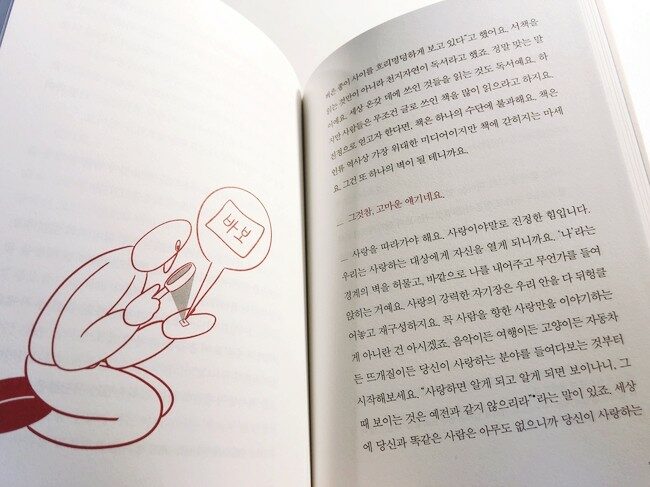 바보
싸돈 종이 사이를 흐리멍덩하게 보고 있다”고 했어요. 서책을
읽는 것만이 아니라 천지자연이 독서라고 했죠. 정말 맞는 말
이에요. 세상 온갖 데에 쓰인 것들을 읽는 것도 독서예요. 하
지만 사람들은 무조건 글로 쓰인 책을 많이 읽으라고 하지요.
진정으로 얻고자 한다면, 책은 하나의 수단에 불과해요. 책은
인류 역사상 가장 위대한 미디어이지만 책에 갇히지는 마세
요. 그건 또 하나의 벽이 될 테니까요.
— 그것참, 고마운 얘기네요.
— 사랑을 따라가야 해요. 사랑이야말로 진정한 힘입니다.
우리는 사랑하는 대상에게 자신을 열게 되니까요. ‘나’라는
경계의 벽을 허물고, 바깥으로 나를 내어주고 무언가를 들여
앉히는 거예요. 사랑의 강력한 자기장은 우리 안을 다 뒤헝클
어놓고 재구성하지요. 꼭 사람을 향한 사랑만을 이야기하는
게 아니란 건 아시겠죠. 음악이든 여행이든 고양이든 자동차
든 뜨개질이든 당신이 사랑하는 분야를 들여다보는 것부터
시작해보세요. “사랑하면 알게 되고 알게 되면 보이나니, 그
때 보이는 것은 예전과 같지 않으리라”*라는 말이 있죠. 세상
에 당신과 똑같은 사람은 아무도 없으니까 당신이 사랑하는